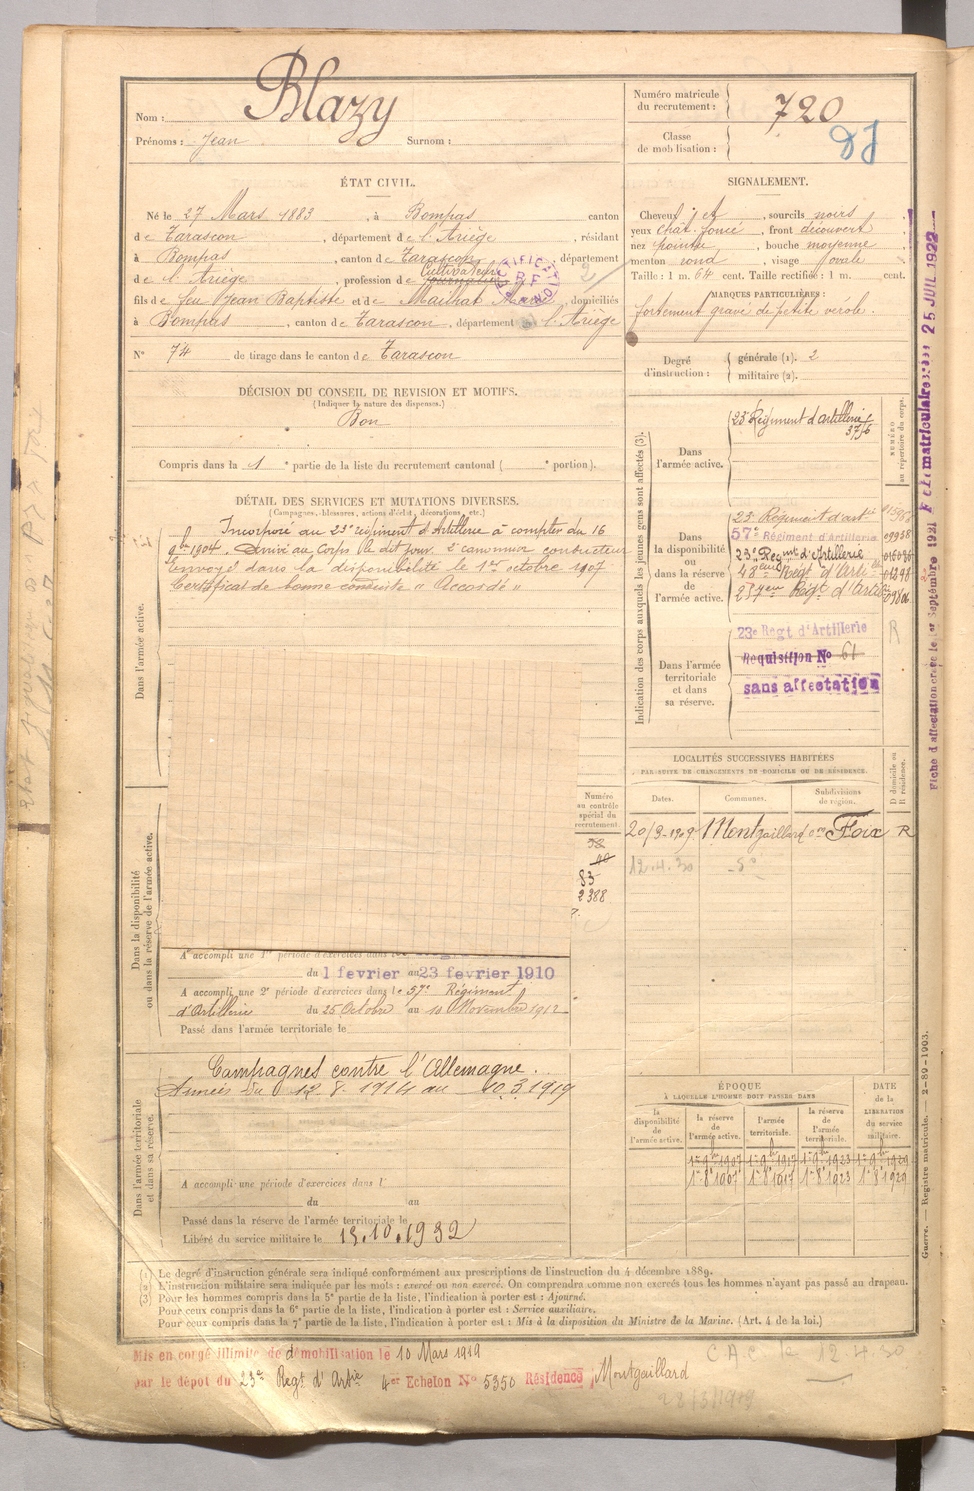 Nom : Blazy
Prénoms : Jean Surnom :
Numéro matricule du recrutement : 720
Classe de mobilisation :
ÉTAT CIVIL.
Né le 27 Mars 1883, à Bompas canton
de Tarascon, département de l'Ariège, résidant
à Bompas, canton de Tarascon, département
de l'Ariège, profession de Cultivateur
fils de feu Jean Baptiste et de Mailhat Marie domiciliés
à Bompas, canton de Tarascon, département de l'Ariège
N° 74 de tirage dans le canton de Tarascon
SIGNALEMENT.
Cheveux et, sourcils noirs
yeux chât. foncé, front découvert
nez pointu, bouche moyenne
menton rond, visage ovale
Taille : 1 m. 64 cent. Taille rectifiée : 1 m. cent.
MARQUES PARTICULIÈRES :
fortement gravé de petite vérole.
Degré d'instruction : générale (1). 2
militaire (2).
DÉCISION DU CONSEIL DE REVISION ET MOTIFS.
(Indiquer la nature des dispenses.)
Bon
Compris dans la 1e partie de la liste du recrutement cantonal ( e portion).
DÉTAIL DES SERVICES ET MUTATIONS DIVERSES.
(Campagnes, blessures, actions d'éclat, décorations, etc.)
Dans l'armée active.
Incorporé au 23e régiment d'Artillerie à compter du 16
9bre 1904. Arrivé au Corps le dit jour. 2e canonnier conducteur
Envoyé dans la disponibilité le 1er octobre 1907
Certificat de bonne conduite " Accordé "
Indication des corps auxquels les jeunes gens sont affectés (3).
NUMÉRO au répertoire du corps.
Dans l'armée active.
23e Régiment d'artillerie
Dans la disponibilité ou dans la réserve de l'armée active.
23e Régiment d'artie
57e Régiment d'Artillerie 09958
23e Regmt d'Artillerie
43eme Regt d'Artie
257eme Regt d'Artie
Dans l'armée territoriale et dans sa réserve.
23e Regt d'Artillerie
R
Requisition No 61
sans affectation
Fiche d'affectation créée le 1er Septembre 1921
25 JUIL 1922
LOCALITÉS SUCCESSIVES HABITÉES
PAR SUITE DE CHANGEMENTS DE DOMICILE OU DE RÉSIDENCE.
Dates. Communes. Subdivisions de région. D domicile ou R résidence.
20/3-1909 Montgaillard Foix R
12.4.30 do
Numéro au contrôle spécial du recrutement.
83
2388
Dans la disponibilité ou dans la réserve de l'armée active.
A accompli une 1re période d'exercices dans
du 1 fevrier au 23 fevrier 1910
A accompli une 2e période d'exercices dans le 57e Régiment
d'Artillerie du 25 Octobre au 10 Novembre 1912
Passé dans l'armée territoriale le
Dans l'armée territoriale et dans sa réserve.
Campagnes contre l'Allemagne.
Armées du 12.8.1914 au 10.3.1919
A accompli une période d'exercices dans l'
du au
Passé dans la réserve de l'armée territoriale le
Libéré du service militaire le 15.10.1932
ÉPOQUE
À LAQUELLE L'HOMME DOIT PASSER DANS
DATE de la LIBÉRATION du service militaire.
la disponibilité de l'armée active. la réserve de l'armée active. l'armée territoriale. la réserve de l'armée territoriale.
1er 9bre 1907 1er 9bre 1917 1er 9bre 1923 1er 9bre 1929
1er 8e 1907 1er 8e 1917 1er 8e 1923 1er 8e 1929
Guerre. — Registre matricule. — 2-89-1903.
(1) Le degré d'instruction générale sera indiqué conformément aux prescriptions de l'instruction du 4 décembre 1889.
(2) L'instruction militaire sera indiquée par les mots : exercé ou non exercé. On comprendra comme non exercés tous les hommes n'ayant pas passé au drapeau.
(3) Pour les hommes compris dans la 5e partie de la liste, l'indication à porter est : Ajourné.
Pour ceux compris dans la 6e partie de la liste, l'indication à porter est : Service auxiliaire.
Pour ceux compris dans la 7e partie de la liste, l'indication à porter est : Mis à la disposition du Ministre de la Marine. (Art. 4 de la loi.)
Mis en congé illimité de démobilisation le 10 Mars 1919
par le dépôt du 23e Regt d'Artie 4e Echelon No 5350 Résidence Montgaillard
CAC le 12.4.30
28/3/1919